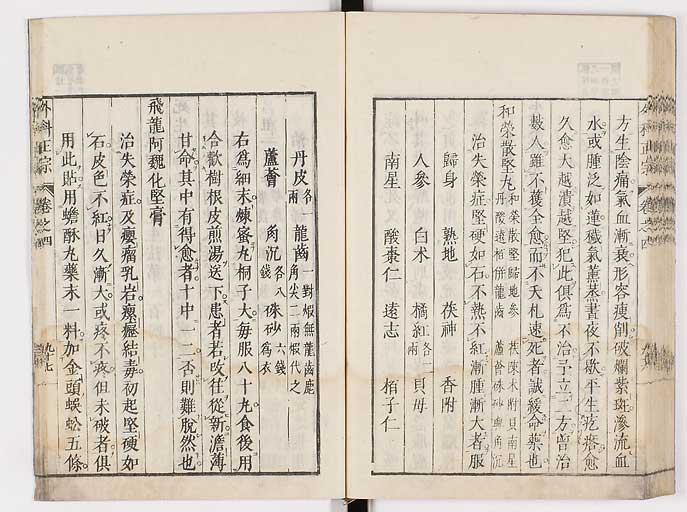 方生陰痛氣血漸衰形容瘦削破爛紫斑滲流血
水或腫泛如蓮穢氣薰蒸晝夜不歇平生疙瘩愈
久愈大越潰越堅犯此俱爲不治予立二方曾治
數人雖不獲全愈而不夭札速死者誠緩命藥也
和榮散堅丸
和榮散堅歸地參 茯陳木附貝南星
丹酸遠栢併龍齒 蘆薈硃砂與角沉
治失榮症堅硬如石不熱不紅漸腫漸大者服
歸身 熟地 茯神 香附
人參 白术 橘紅各一兩 貝母
南星 酸棗仁 遠志 栢子仁
丹皮各一兩 龍齒一對煆無龍齒鹿角尖二兩煆代之
蘆薈 角沉各八錢 硃砂六錢爲衣
右爲細末煉蜜丸桐子大每服八十丸食後用
合歡樹根皮煎湯送下患者若改往從新澹薄
甘命其中有得愈者十中一二否則難脫然也
飛龍阿魏化堅膏
治失榮症及癭瘤乳岩瘰癧結毒初起堅硬如
石皮色不紅日久漸大或疼不疼但未破者俱
用此貼用蟾酥丸藥末一料加金頭蜈蚣五條
外科正宗 卷之四 九十七